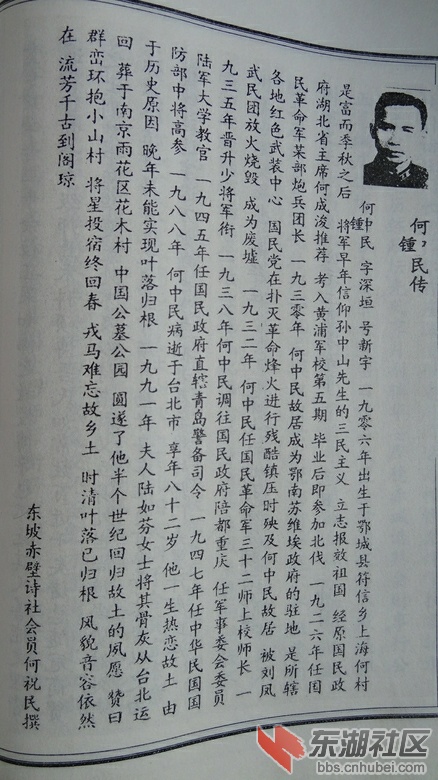 何钟民传
何中民 字深垣 号新宇 一九〇六年出生于鄂城县符信乡上海何村
钟
是富而季秋之后 将军早年信仰孙中山先生的三民主义 立志报效祖国 经原国民政
府湖北省主席何成浚推荐 考入黄浦军校第五期 毕业后即参加北伐 一九二六年任国
民革命军某部炮兵团长 一九三〇年 何中民故居成为鄂南苏维埃政府的驻地 是所辖
各地红色武装中心 国民党在扑灭革命烽火进行残酷镇压时殃及何中民故居 被刘凤
武民团放火烧毁 成为废墟 一九三二年 何中民任国民革命军三十二师上校师长 一
九三五年晋升少将军衔 一九三八年何中民调往国民政府陪都重庆 任军事委会委员
陆军大学教官 一九四五年任国民政府直辖青岛警备司令 一九四七年任中华民国国
防部中将高参 一九八八年 何中民病逝于台北市 享年八十二岁 他一生热恋故土 由
于历史原因 晚年未能实现叶落归根 一九九一年 夫人陆如芬女士将其骨灰从台北运
回 葬于南京雨花区花木村 中国公墓公园 圆遂了他半个世纪回归故土的夙愿 赞曰
群峦环抱小山村 将星投宿终回春 戎马难忘故乡土 时清叶落已归根 风貌音容依然
在 流芳千古到阁琼
东坡赤壁诗社会员何祝民撰
东湖社区
bbs.cnhubei.com